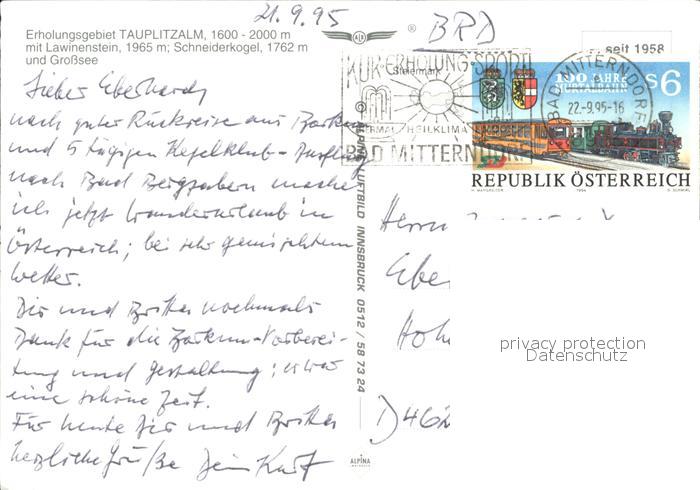 21.9.95
BRD
Erholungsgebiet TAUPLITZALM, 1600 - 2000 m
mit Lawinenstein, 1965 m; Schneiderkogel, 1762 m
und Großsee
seit 1958
KUR·ERHOLUNG·SPORT
Steiermark
HEILKLIMA
BAD MITTERNDORF
BAD MITTERNDORF
22.-9.95-16
100 JAHRE
MURTALBAHN
S 6
REPUBLIK ÖSTERREICH
1994
Lieber Eberhard,
nach guter Rückreise aus Borkum
und 5 tägigen Kegelklub-Ausflug
nach Bad Bergzabern mache
ich jetzt Wanderurlaub in
Österreich; bei sehr gemischtem
Wetter.
Dir und nochmals
Dank für die Borkum-Vorberei-
tung und Gestaltung; es war
eine schöne Zeit.
Für heute Dir und
herzliche Grüße Dein Kurt
ALPINE LUFTBILD INNSBRUCK 0512 / 58 73 24
ALPINA
Herrn
Eber
Hohe
D 462
privacy protection
Datenschutz